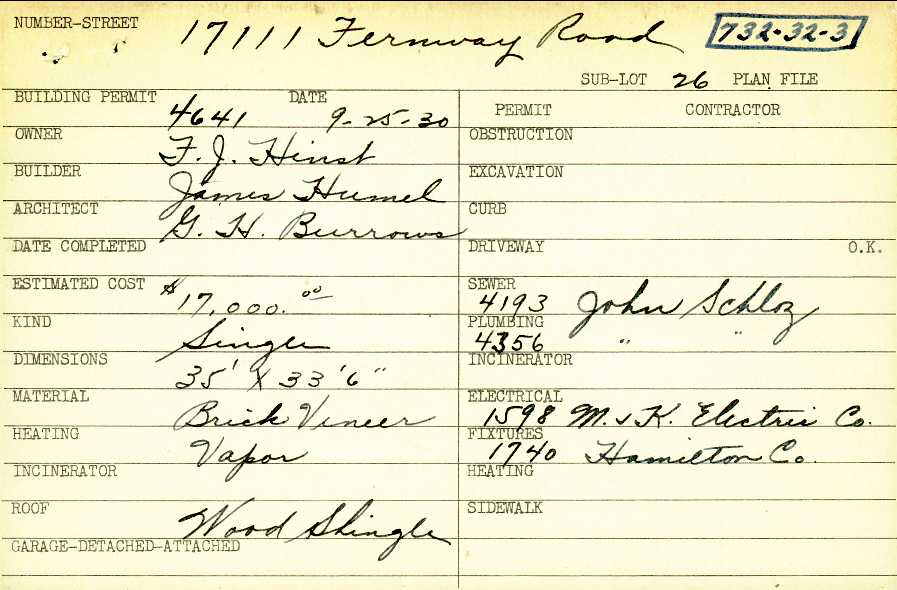 NUMBER-STREET 17111 Fernway Road 732-32-3
SUB-LOT 26 PLAN FILE
BUILDING PERMIT 4641 DATE 9-25-30
PERMIT CONTRACTOR
OWNER F. J. Hinst
OBSTRUCTION
BUILDER James Humel
EXCAVATION
ARCHITECT G. H. Burrows
CURB
DATE COMPLETED
DRIVEWAY O.K.
ESTIMATED COST $17,000.00
SEWER 4193 John Schloz
KIND Single
PLUMBING 4356 " "
DIMENSIONS 35' X 33'6"
INCINERATOR
MATERIAL Brick Vineer
ELECTRICAL 1598 M. & K. Electric Co.
HEATING Vapor
FIXTURES 1740 Hamilton Co.
INCINERATOR
HEATING
ROOF Wood Shingle
SIDEWALK
GARAGE-DETACHED-ATTACHED